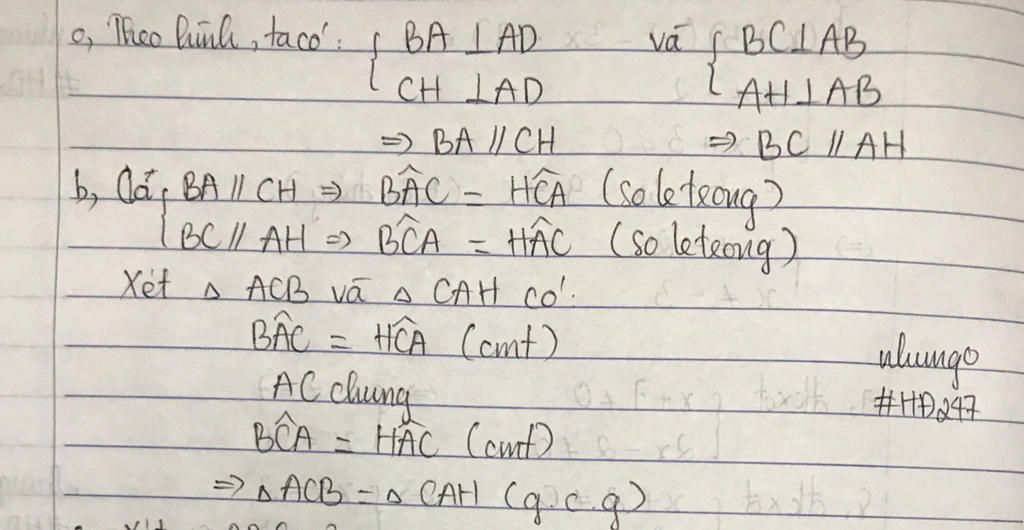 a, Theo hình, ta có: { BA ⊥ AD và { BC ⊥ AB
CH ⊥ AD AH ⊥ AB
=> BA // CH => BC // AH
b, Có { BA // CH => BÂC = HĈA (so le trong)
BC // AH => BĈA = HÂC (so le trong)
Xét △ ACB và △ CAH có:
BÂC = HĈA (cmt)
AC chung
BĈA = HÂC (cmt)
=> △ ACB = △ CAH (g.c.g)
nhungo
#HĐ247